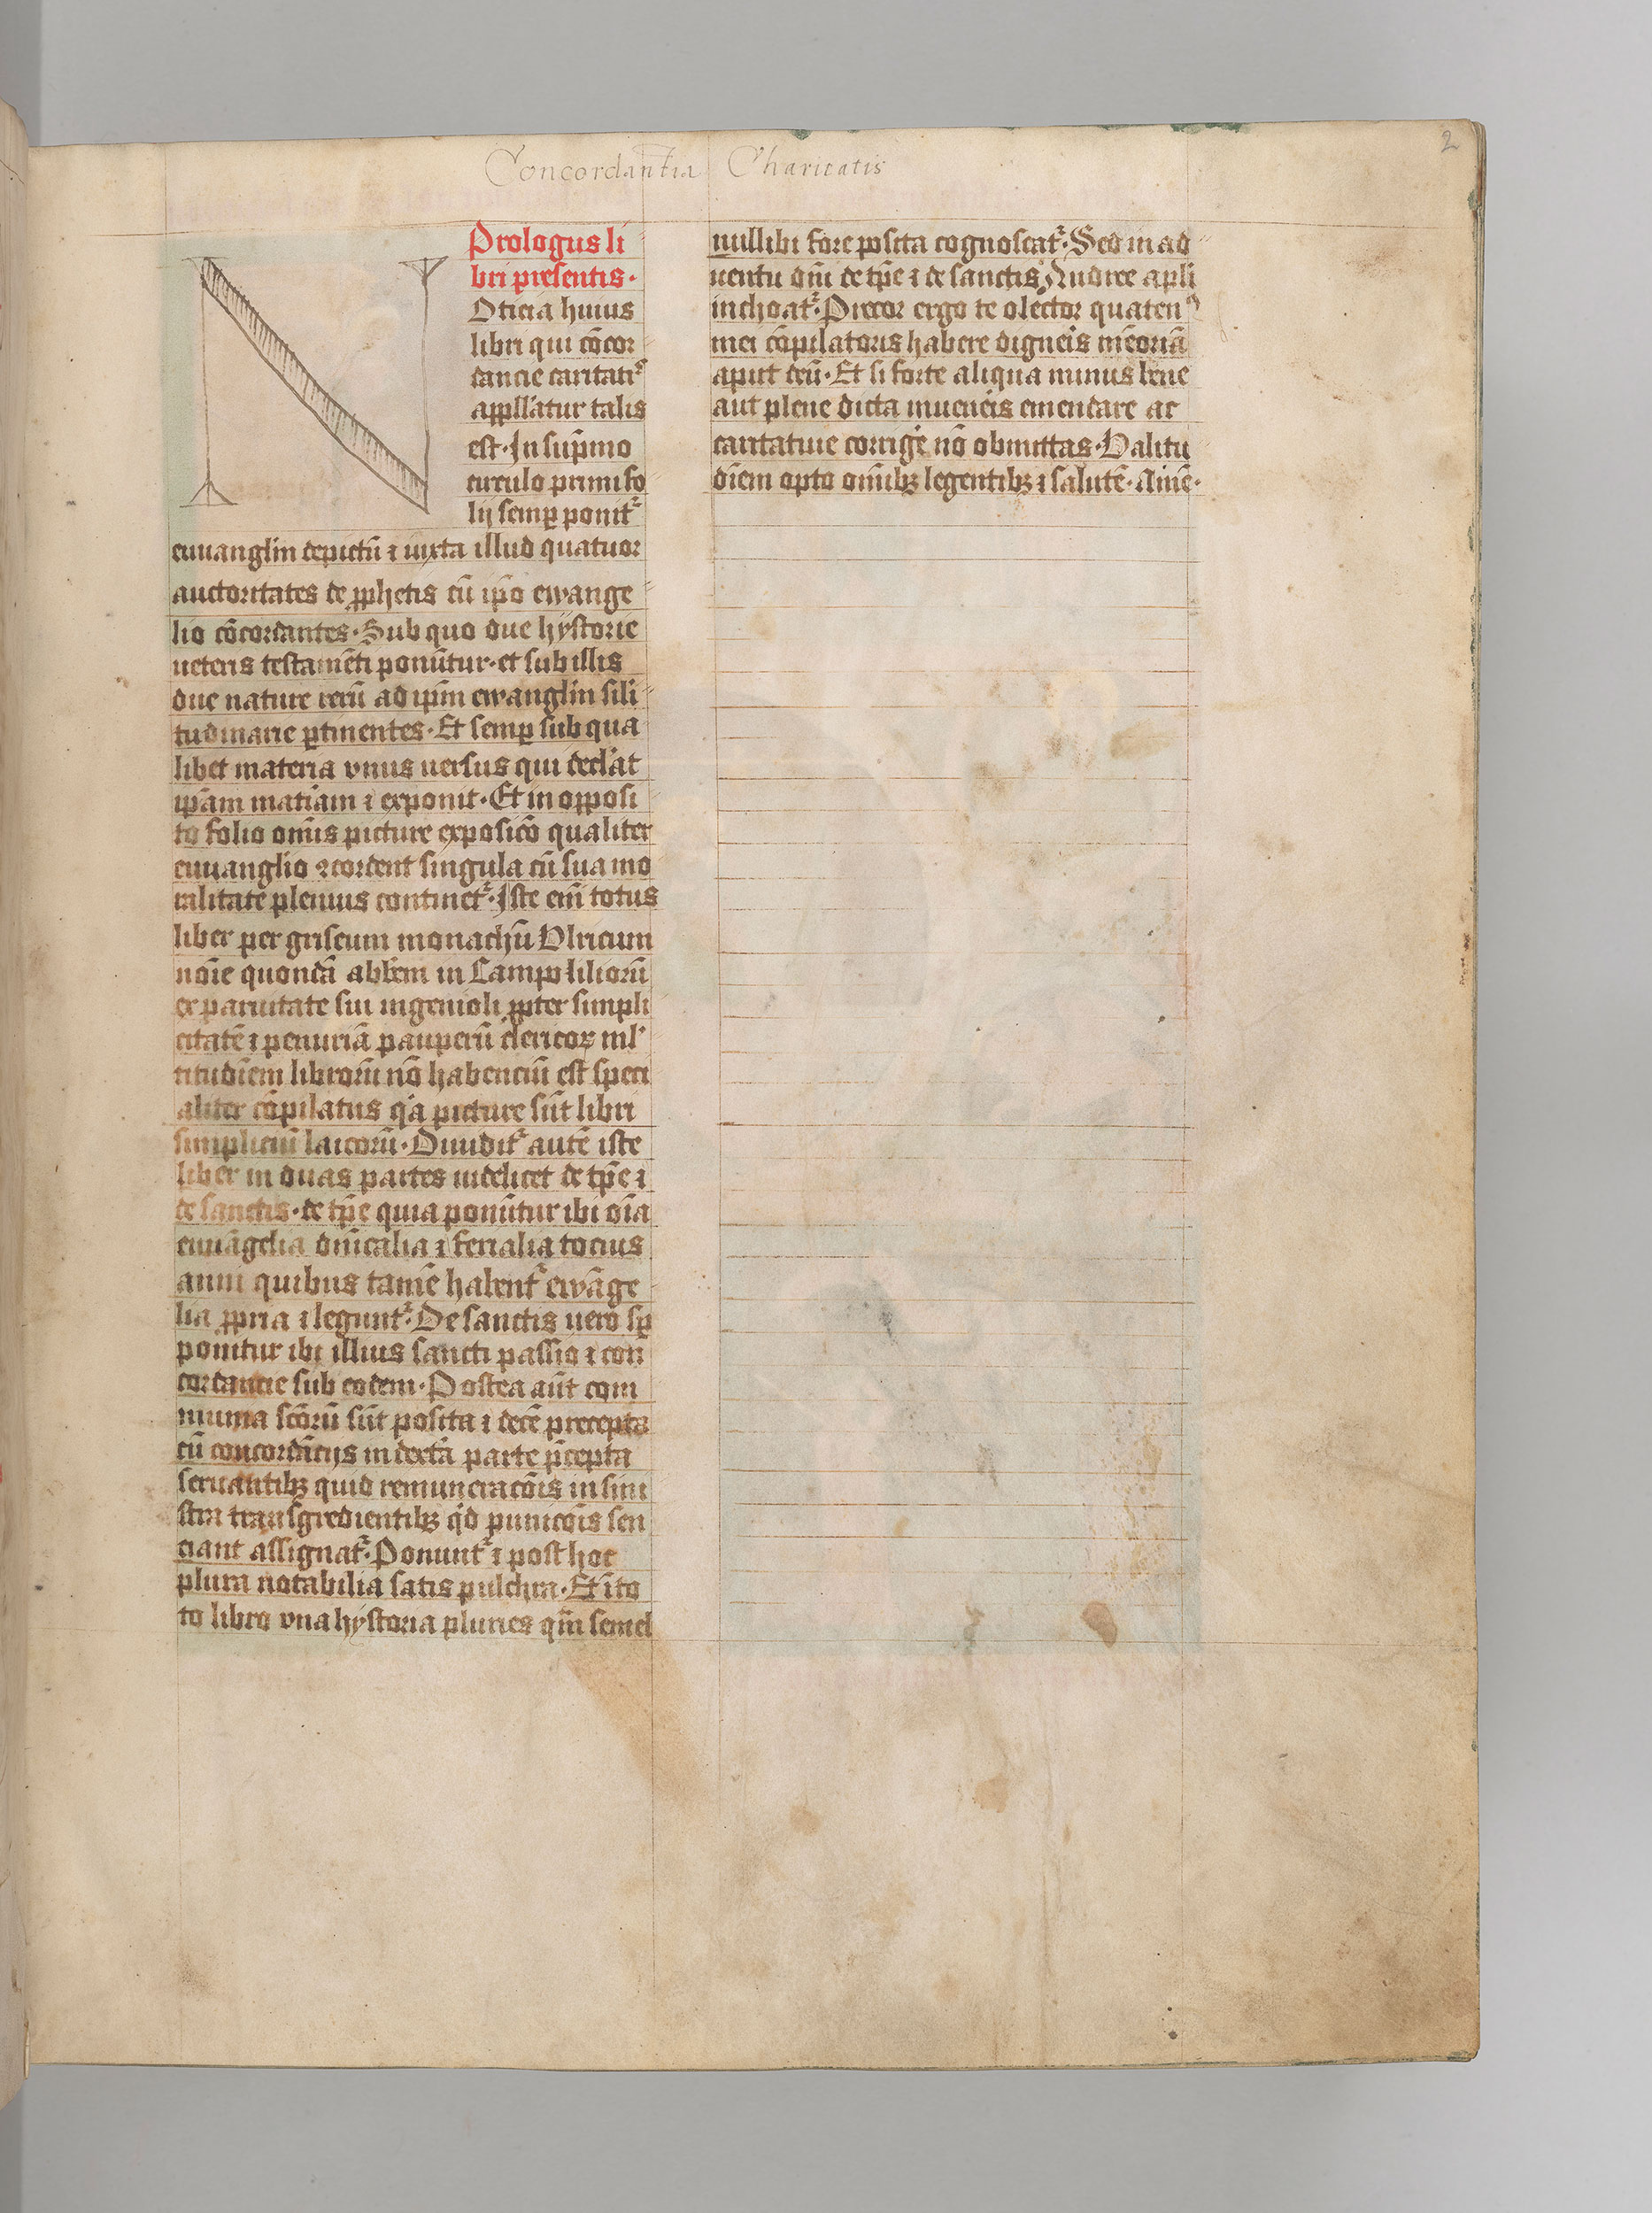 Concordantia Charitatis
2
Prologus li
bri presentis.
N
Oticia huius
libri qui cōcor
dancie caritatiꝰ
appll'atur talis
est. In sup̄mo
circulo primi fo
lij semꝑ ponit᷑
euuangliu depictū ⁊ iuxta illud quatuor
auctoritates de ꝓphetis cū ip̄o ewange
lio cōcordantes. Sub quo due hystorie
ueteris testamēti ponūtur. et sub illis
due nature rerū ad ip̄m ewangliu sili
tudinarie ꝑtinentes. Et semꝑ sub qua
libet materia vnus uersus qui decl'at
ip̄am mat'iam ⁊ exponit. Et in opposi
to folio om̄is picture exposicō qualiter
euuanglio ꝯcordent singula cū sua mo
ralitate plenius continet᷑. Iste em̄ totus
liber per griseum monachū Vlricum
noīe quondā abb'em in Campo liliorū
ex paruitate sui ingenioli ꝓpter simpli
citatē ⁊ penuriā pauperū clericoꝝ ml'
titudīem librorū nō habenciū est speci
aliter cōpilatus q'a picture sūt libri
simpliciū laicorū. Diuidit᷑ autē iste
liber in duas partes uidelicet de tp̄e ⁊
de sanctis. de tp̄e quia ponūtur ibi oīa
euuāgelia dn̄icalia ⁊ ferialia tocius
anni quibus tamē habent᷑ ewāge
lia ꝓpria ⁊ legunt᷑. De sanctis uero sꝑ
ponitur ibi illius sancti passio ⁊ con
cordancie sub eodem. Postea aūt com
munia sc̄orū sūt posita ⁊ decē precepta
cū concordācijs in dext'a parte p̄cepta
seruantibꝫ quid remuneracōis in sini
stra transgredientibꝫ q'd punicōis sen
ciant assignat᷑. Ponunt᷑ ⁊ post hoc
plura notabilia satis pulchra. Et ī to
to libro vna hystoria pluries qm̄ semel
nullibi fore posita cognoscat᷑. Sed in ad
uentu dn̄i de tp̄e ⁊ de sanctis Andree apl'i
inchoat᷑. Precor ergo te o lector quatenꝰ
mei cōpilatoris habere digneris mēoriā
aput deū. Et si forte aliqua minus bene
aut plene dicta inueneris emendare ac
caritatiue corrig'e nō obmittas. Valitu
dīem opto om̄ibꝫ legentibꝫ ⁊ salutē. Amē.